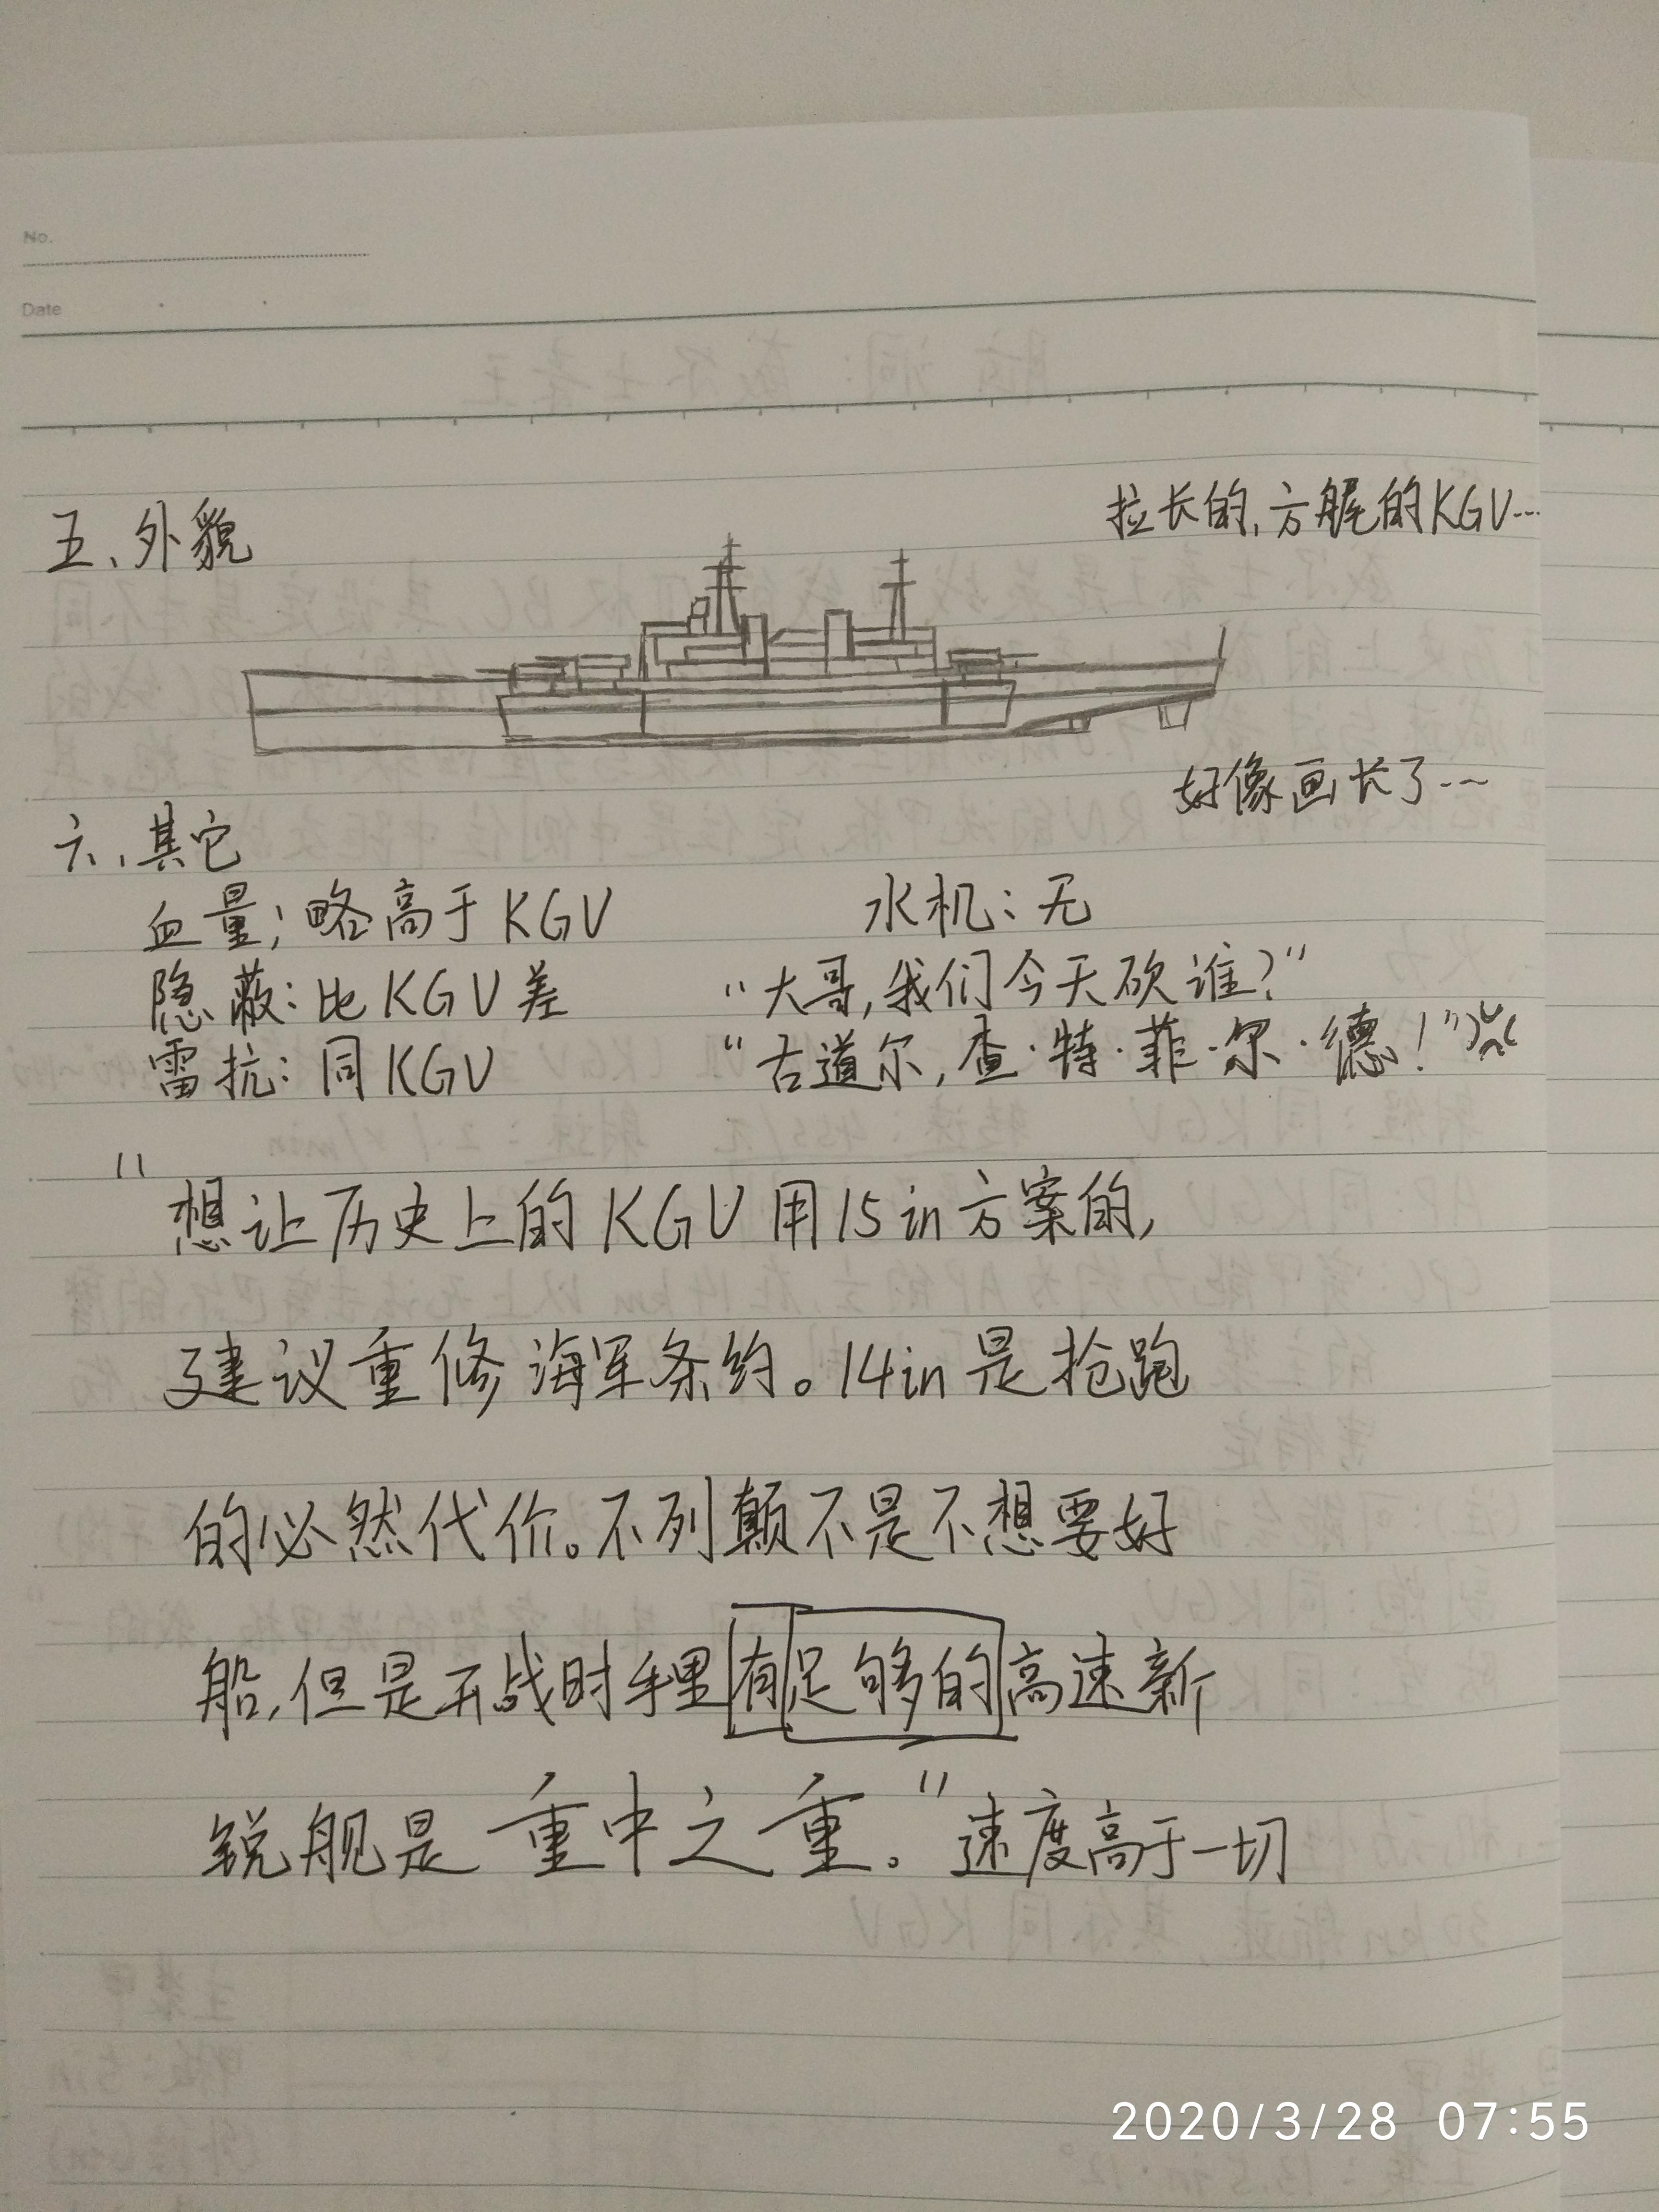 No.
Date
五、外貌
拉长的,方艉的KGV…
好像画长了…
六、其它
血量:略高于KGV
水机:无
隐蔽:比KGV差
“大哥,我们今天砍谁?”
雷抗:同KGV
“古道尔,查·特·菲·尔·德!”
“想让历史上的KGV用15in方案的,
建议重修海军条约。14in是抢跑
的必然代价。不列颠不是不想要好
船,但是开战时手里有足够的高速新
锐舰是重中之重。”速度高于一切
2020/3/28 07:55